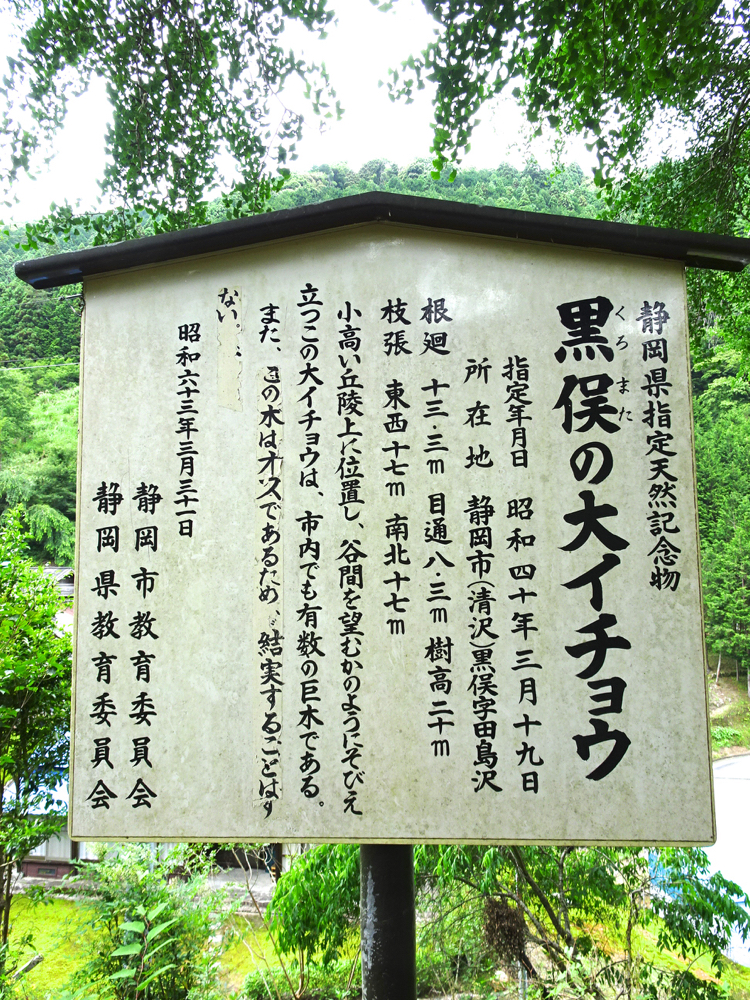 静岡県指定天然記念物
くろまた
黒俣の大イチョウ
指定年月日 昭和四十年三月十九日
所在地 静岡市(清沢)黒俣字田島沢
根廻 十三・三m 目通八・三m 樹高二十m
枝張 東西十七m 南北十七m
小高い丘陵上に位置し、谷間を望むかのようにそびえ
立つこの大イチョウは、市内でも有数の巨木である。
また、この木はオスであるため、結実することはす
ない。
昭和六十三年三月三十一日
静岡市教育委員会
静岡県教育委員会